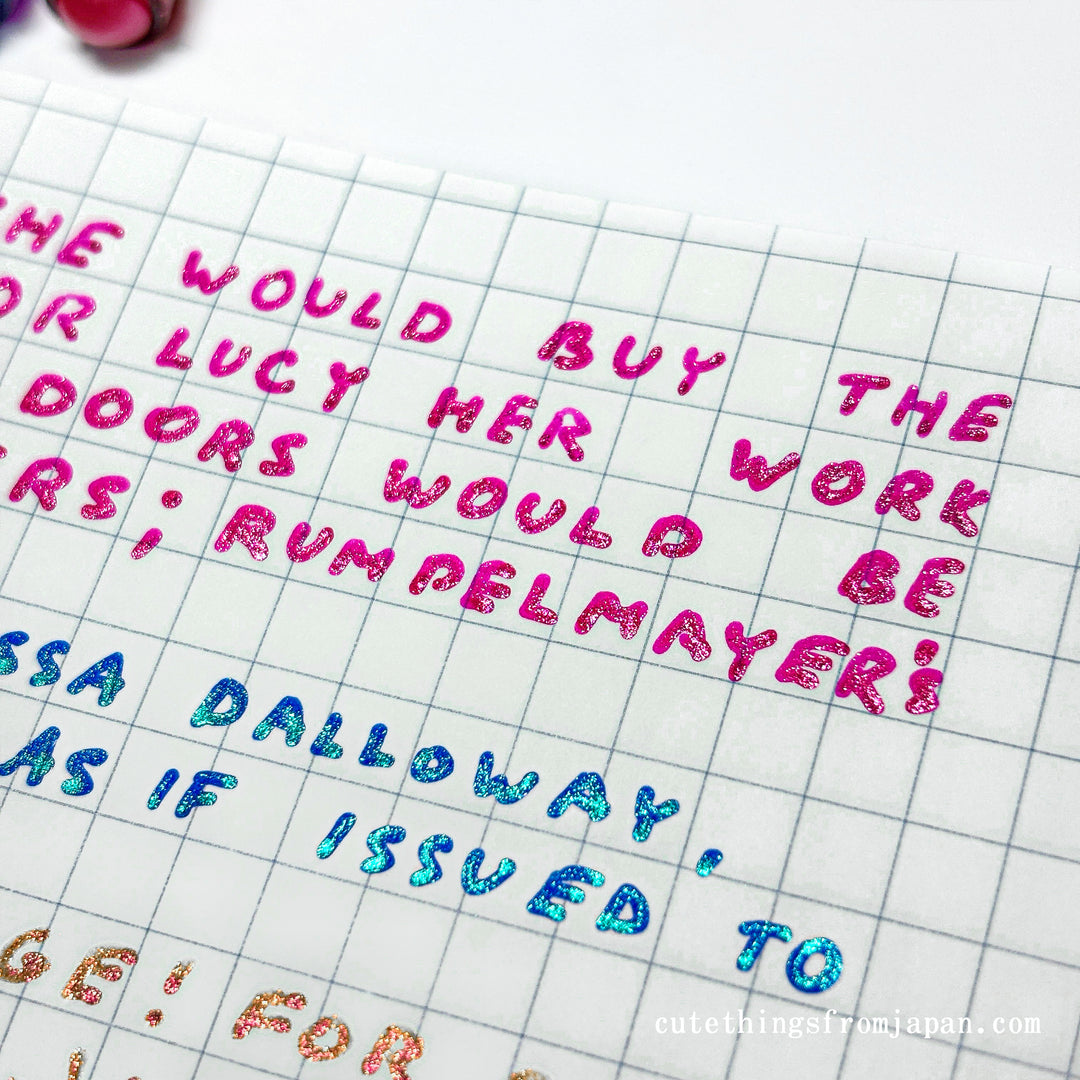 SHE WOULD BUY THE
OR LUCY HER WORK
DOORS WOULD BE
ERS; RUMPELMAYER'S
SSA DALLOWAY,
AS IF ISSUED TO
GE! FOR
cutethingsfromjapan.com